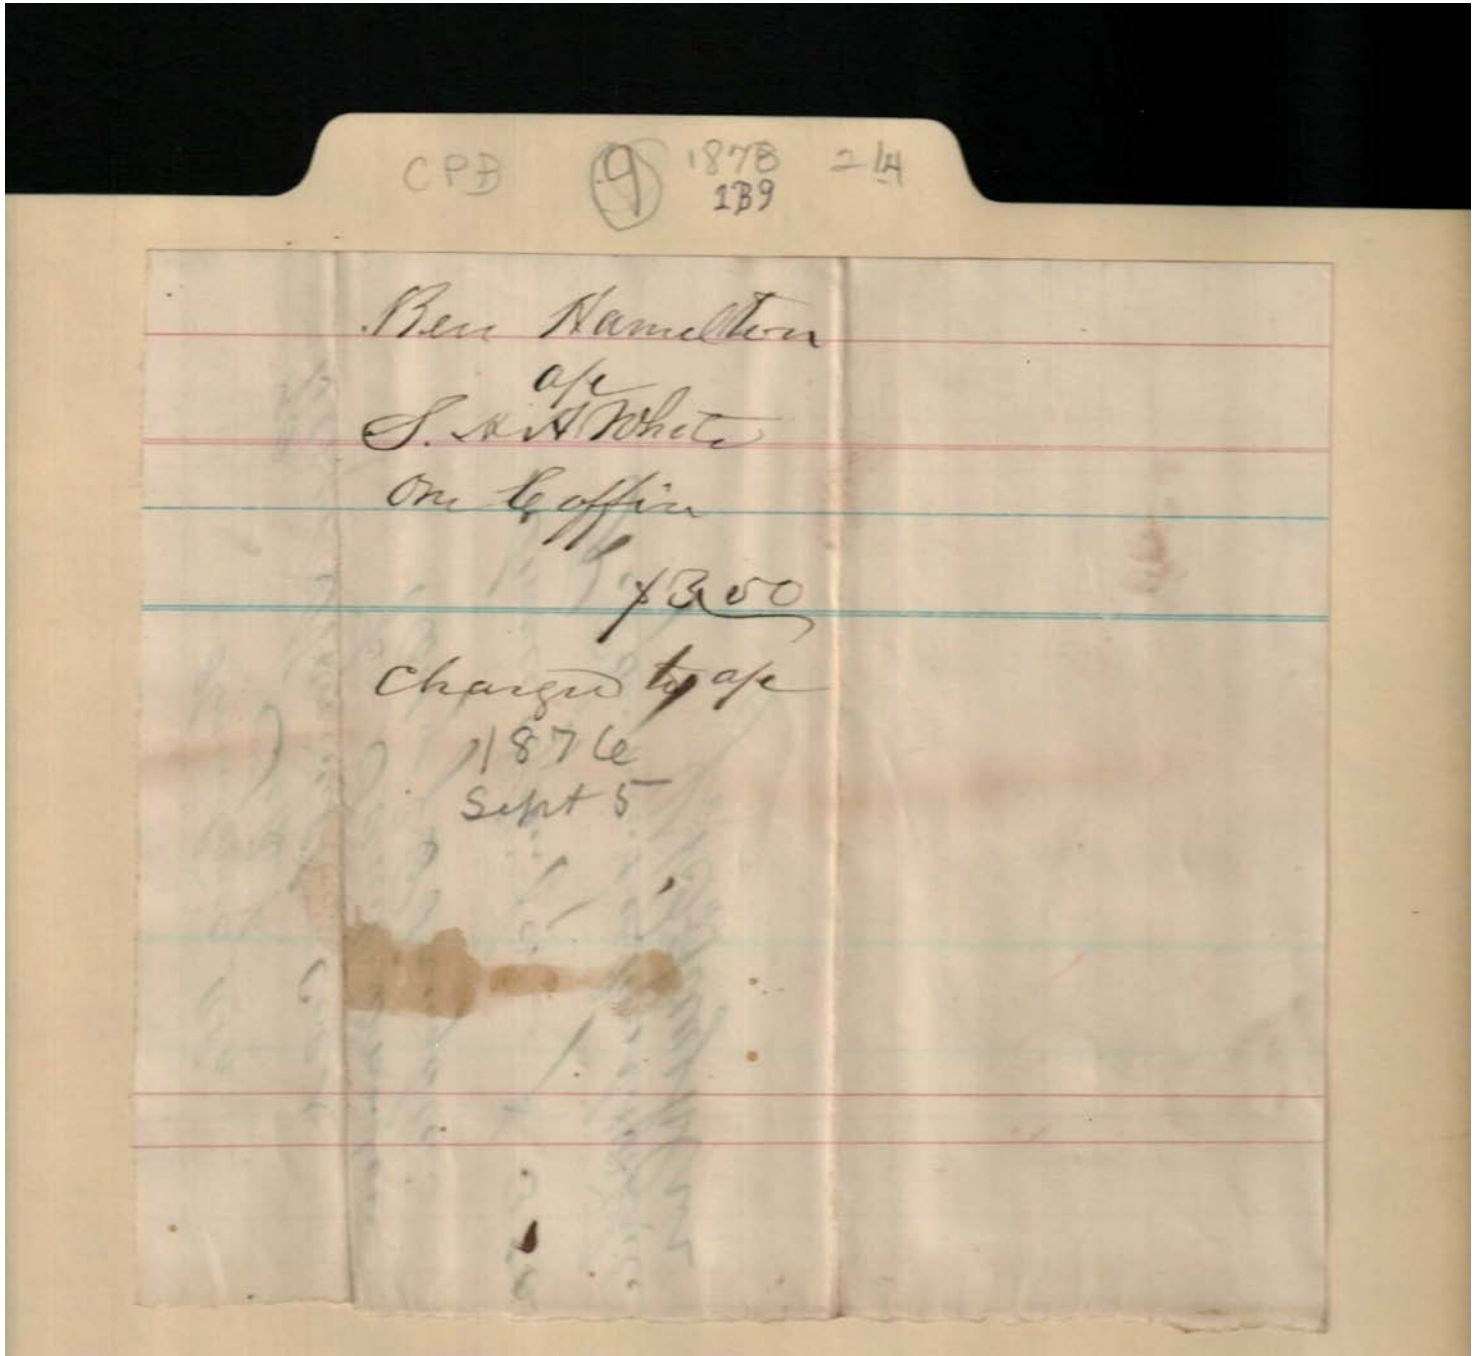 CPB 9 1878 214
1B9
Ben Hamilton
a/c
S. H White
One Coffin
$3.50
Charged to a/c
1876
Sept 5